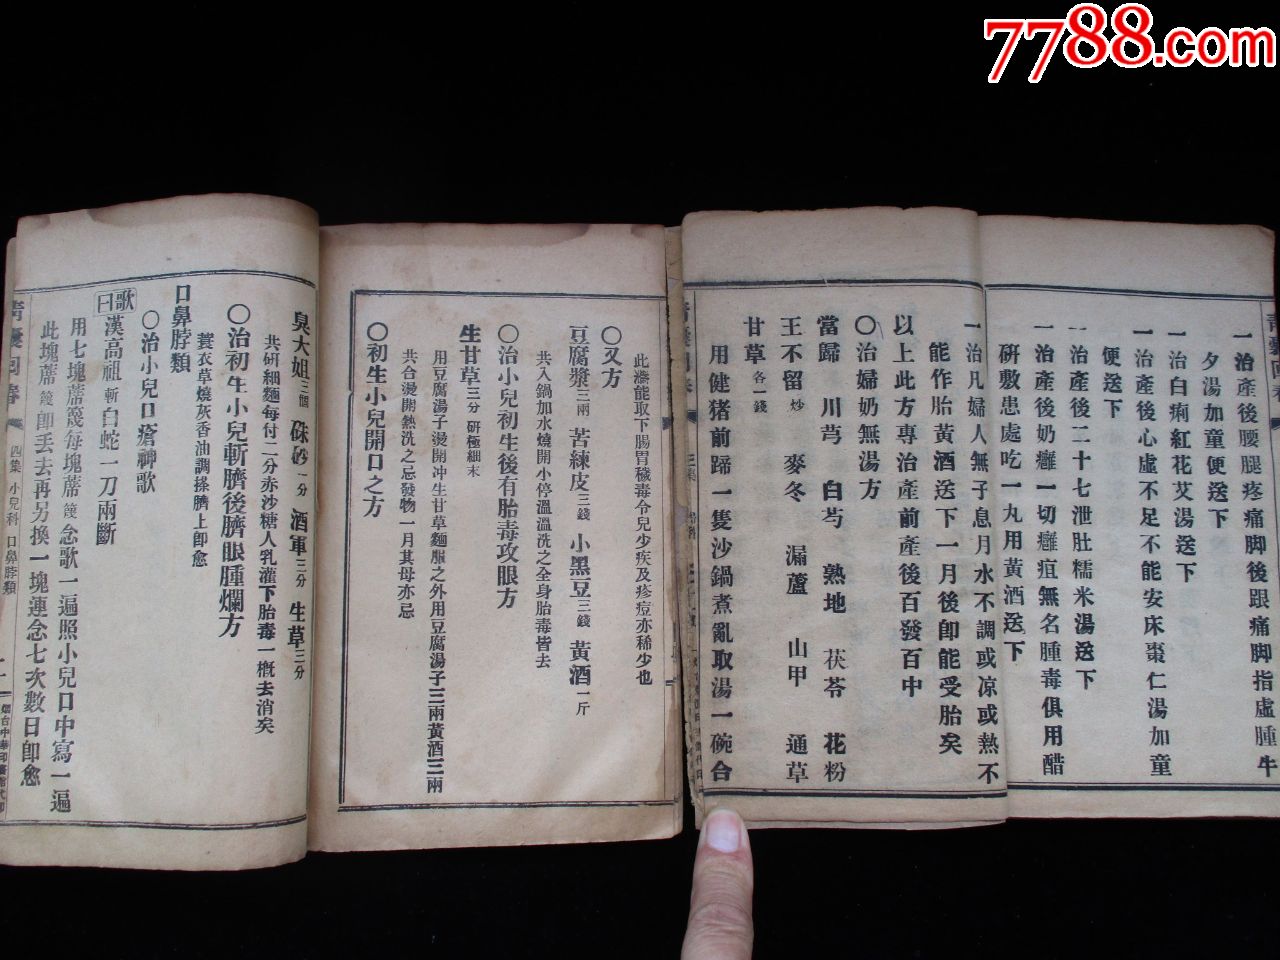 7788.com
青囊回春
一治產後腰腿疼痛脚後跟痛脚指虛腫牛
夕湯加童便送下
一治白痢紅花艾湯送下
一治產後心虛不足不能安床棗仁湯加童
便送下
一治產後二十七泄肚糯米湯送下
一治產後奶癰一切癰疽無名腫毒俱用醋
研敷患處吃一丸用黃酒送下
一治凡婦人無子息月水不調或凉或熱不
能作胎黃酒送下一月後卽能受胎矣
以上此方專治產前產後百發百中
〇治婦奶無湯方
當歸 川芎 白芍 熟地 茯苓 花粉
王不留炒 麥冬 漏蘆 山甲 通草
甘草各一錢
用健猪前蹄一隻沙鍋煮亂取湯一碗合
此㵆能取下腸胃穢毒令兒少疾及疹痘亦稀少也
〇又方
豆腐漿三兩 苦練皮三錢 小黑豆三錢 黃酒一斤
共入鍋加水燒開小停溫溫洗之全身胎毒皆去
〇治小兒初生後有胎毒攻眼方
生甘草三分研極細末
用豆腐湯子燙開冲生甘草麵服之外用豆腐湯子三兩黃酒三兩
共合燙開熱洗之忌發物一月其母亦忌
〇初生小兒開口之方
臭大姐三個 硃砂一分 酒軍三分 生草三分
共研細麵每付一二分赤沙糖人乳灌下胎毒一概去消矣
〇治初生小兒斬臍後臍眼腫爛方
蓑衣草燒灰香油調搽臍上卽愈
口鼻脖類
〇治小兒口瘡神歌
歌曰漢高祖斬白蛇一刀兩斷
用七塊蓆篾每塊蓆篾念歌一遍照小兒口中寫一遍
此塊蓆篾卽丟去再另換一塊連念七次數日卽愈
青囊回春 四集 小兒科 口鼻脖類